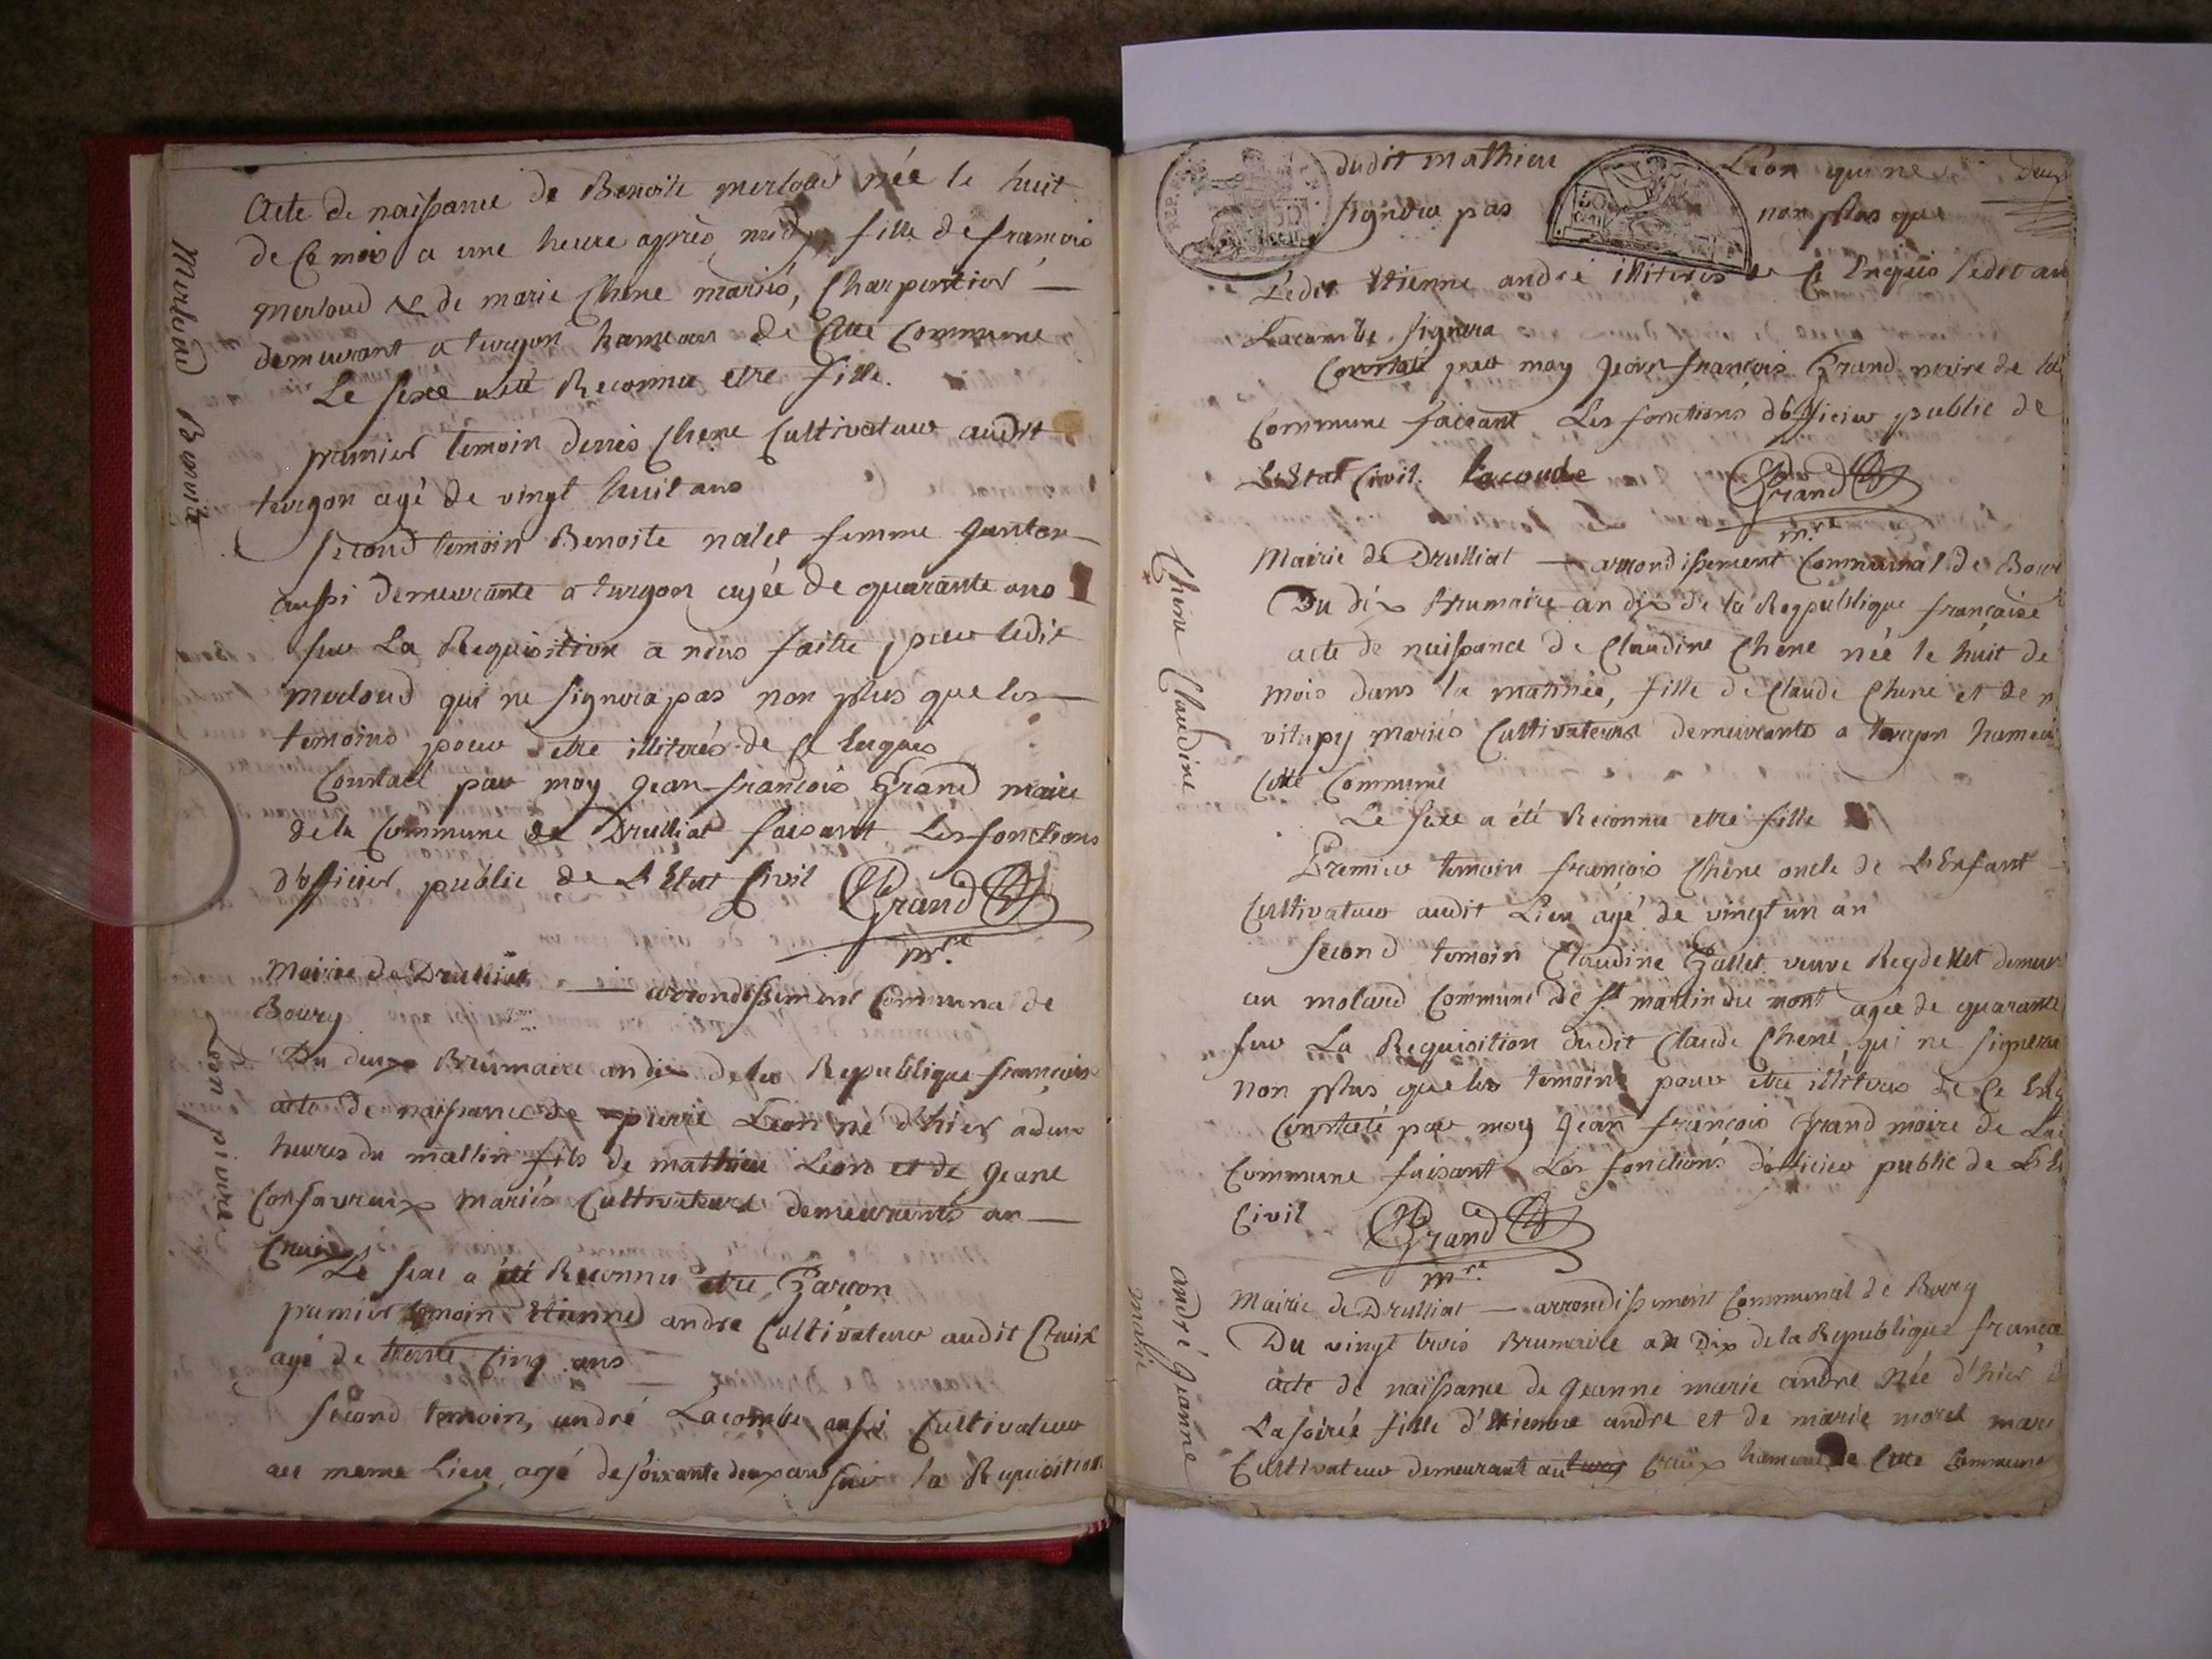 Acte de naissance de Benoite merloud née le huit
de Ce mois a une heure après midy, fille de francois
merloud & de marie Chene mariés, Charpentier —
demeurant a turgon hameau de Cette Commune
Le sexe a été Reconnu etre fille.
premier temoin denis Chene Cultivateur audit
turgon agé de vingt huit ans
second temoin Benoite nalet femme
aussi demeurante a turgon agée de quarante ans
sur La Requisition a nous faitte par ledit
merloud qui ne signera pas non plus que les —
temoins pour etre illiterés de Ce Enquis
Constaté par moy Jean-francois Grand maire
de la Commune de Drulliat faisant Les fonctions
d'officier public de L'Etat Civil Grand
mre.
Merloud Benoite
Mairie de Drulliat — arrondissement Communal de
Bourg
Du deux Brumaire an dix de la Republique francoise
acte de naissance de pierre Leon né d'hier a deux
heures du mattin fils de mathieu Leon et de Jeane
Confavreux mariés Cultivateurs demeurants au —
Cruix
Le sexe a été Reconnu etre Garcon
premier temoin Etienne andre Cultivateur audit Cruix
agé de trente Cinq ans —
second temoin, andré Lacombe aussi Cultivateur
au meme Lieu agé de soixante deux ans sur la Requisition
Leon pierre
dudit mathieu Léon qui ne deux
signera pas non plus que
Ledit Etienne andré illiterés de Ce Enquis ledit an
Lacombe signera
Constaté par moy Jean-françois Grand maire de la
Commune faisant Les fonctions d'officier public de
L'Etat Civil. lacombe Grand
mre
Mairie de Drulliat — arrondissement Communal de Bour
Du dix Brumaire an dix de la Reppublique française
acte de naissance de Claudine Chene née le huit de
mois dans la matinée, fille de Claude Chene et de m
vitupy mariés Cultivateurs demeurants a turgon hameau
Cette Commune
Le sexe a été Reconnu etre fille
Premier temoin françois Chene oncle de L'Enfant —
Cultivateur audit Lieu agé de vingt un an
second temoin Claudine Gallet veuve Reydellet demeur
au molard Commune de St martin du mont agée de quarante
sur La Requisition dudit Claude Chene qui ne signera
non plus que les temoins pour etre illiterés de Ce Enq
Constaté par moy Jean françois Grand maire de La
Commune faisant Les fonctions d'officier public de L'Et
Civil Grand
mre.
Chene Claudine
Mairie de Drulliat — arrondissement Communal de Bourg
Du vingt trois Brumaire an Dix de la Republique françai
acte de naissance de Jeanne marie andre Née d'hier
La soirée fille d'Etienne andre et de marie morel mari
Cultivateur demeurant au Cruix hameau de Cette Commune
andré Jeanne
marie